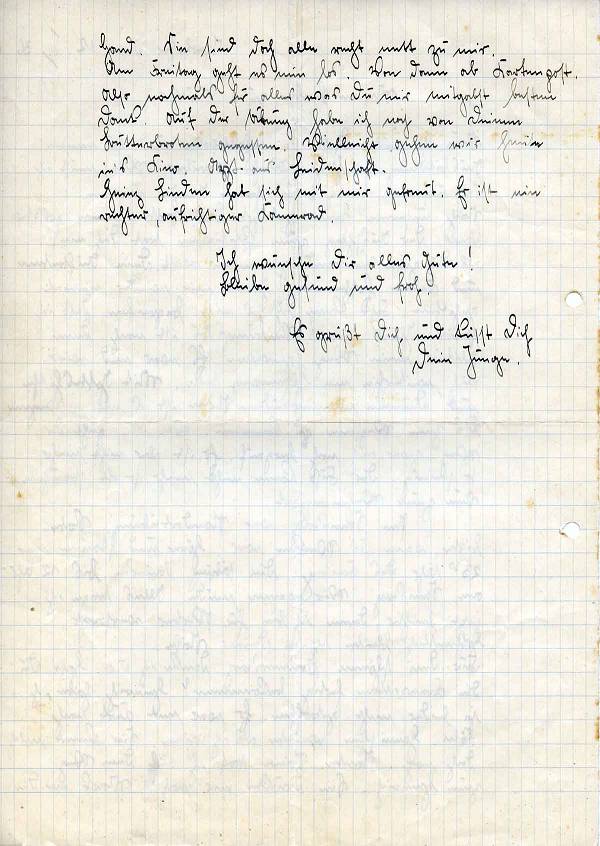 Hand. Sie sind doch alle recht nett zu mir.
Am Freitag geht es nun los. Von dann ab Kartenpost.
Also nochmals für alles was Du mir mitgabst besten
Dank. Auf der Übung habe ich noch von Deinen
Butterbroten gegessen. Vielleicht gehen wir heute
in's Kino. aus Leidenschaft.
Heinz Linden hat sich mit mir gefreut. Er ist ein
rechter, aufrichtiger Kamerad.
Ich wünsche Dir alles Gute!
Bleibe gesund und froh.
Es grüßt Dich und küsst Dich
Dein Junge.